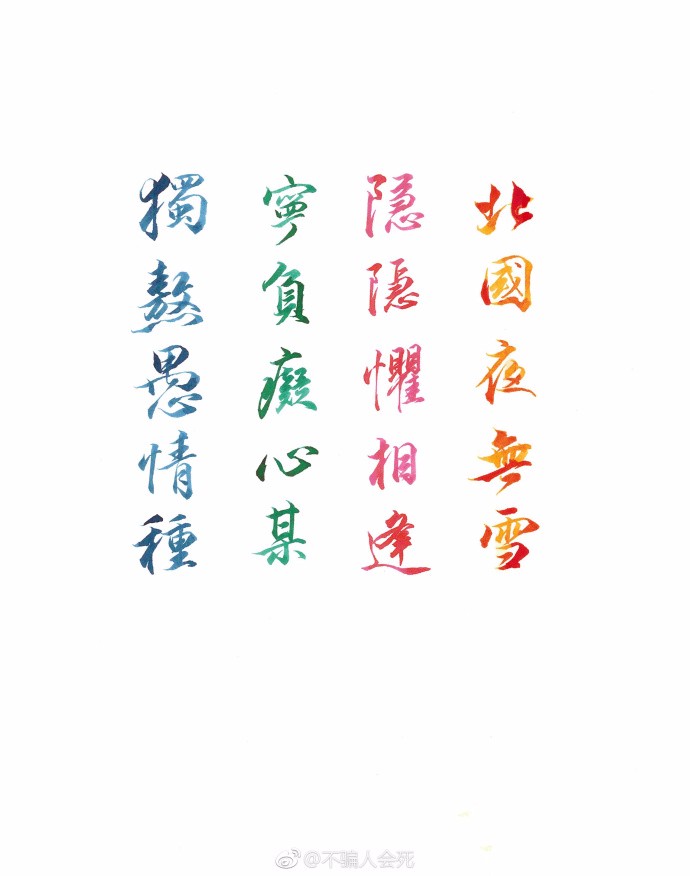 北國夜無雪
隐隱懼相逢
寧負癡心某
獨熬愚情種
@不骗人会死